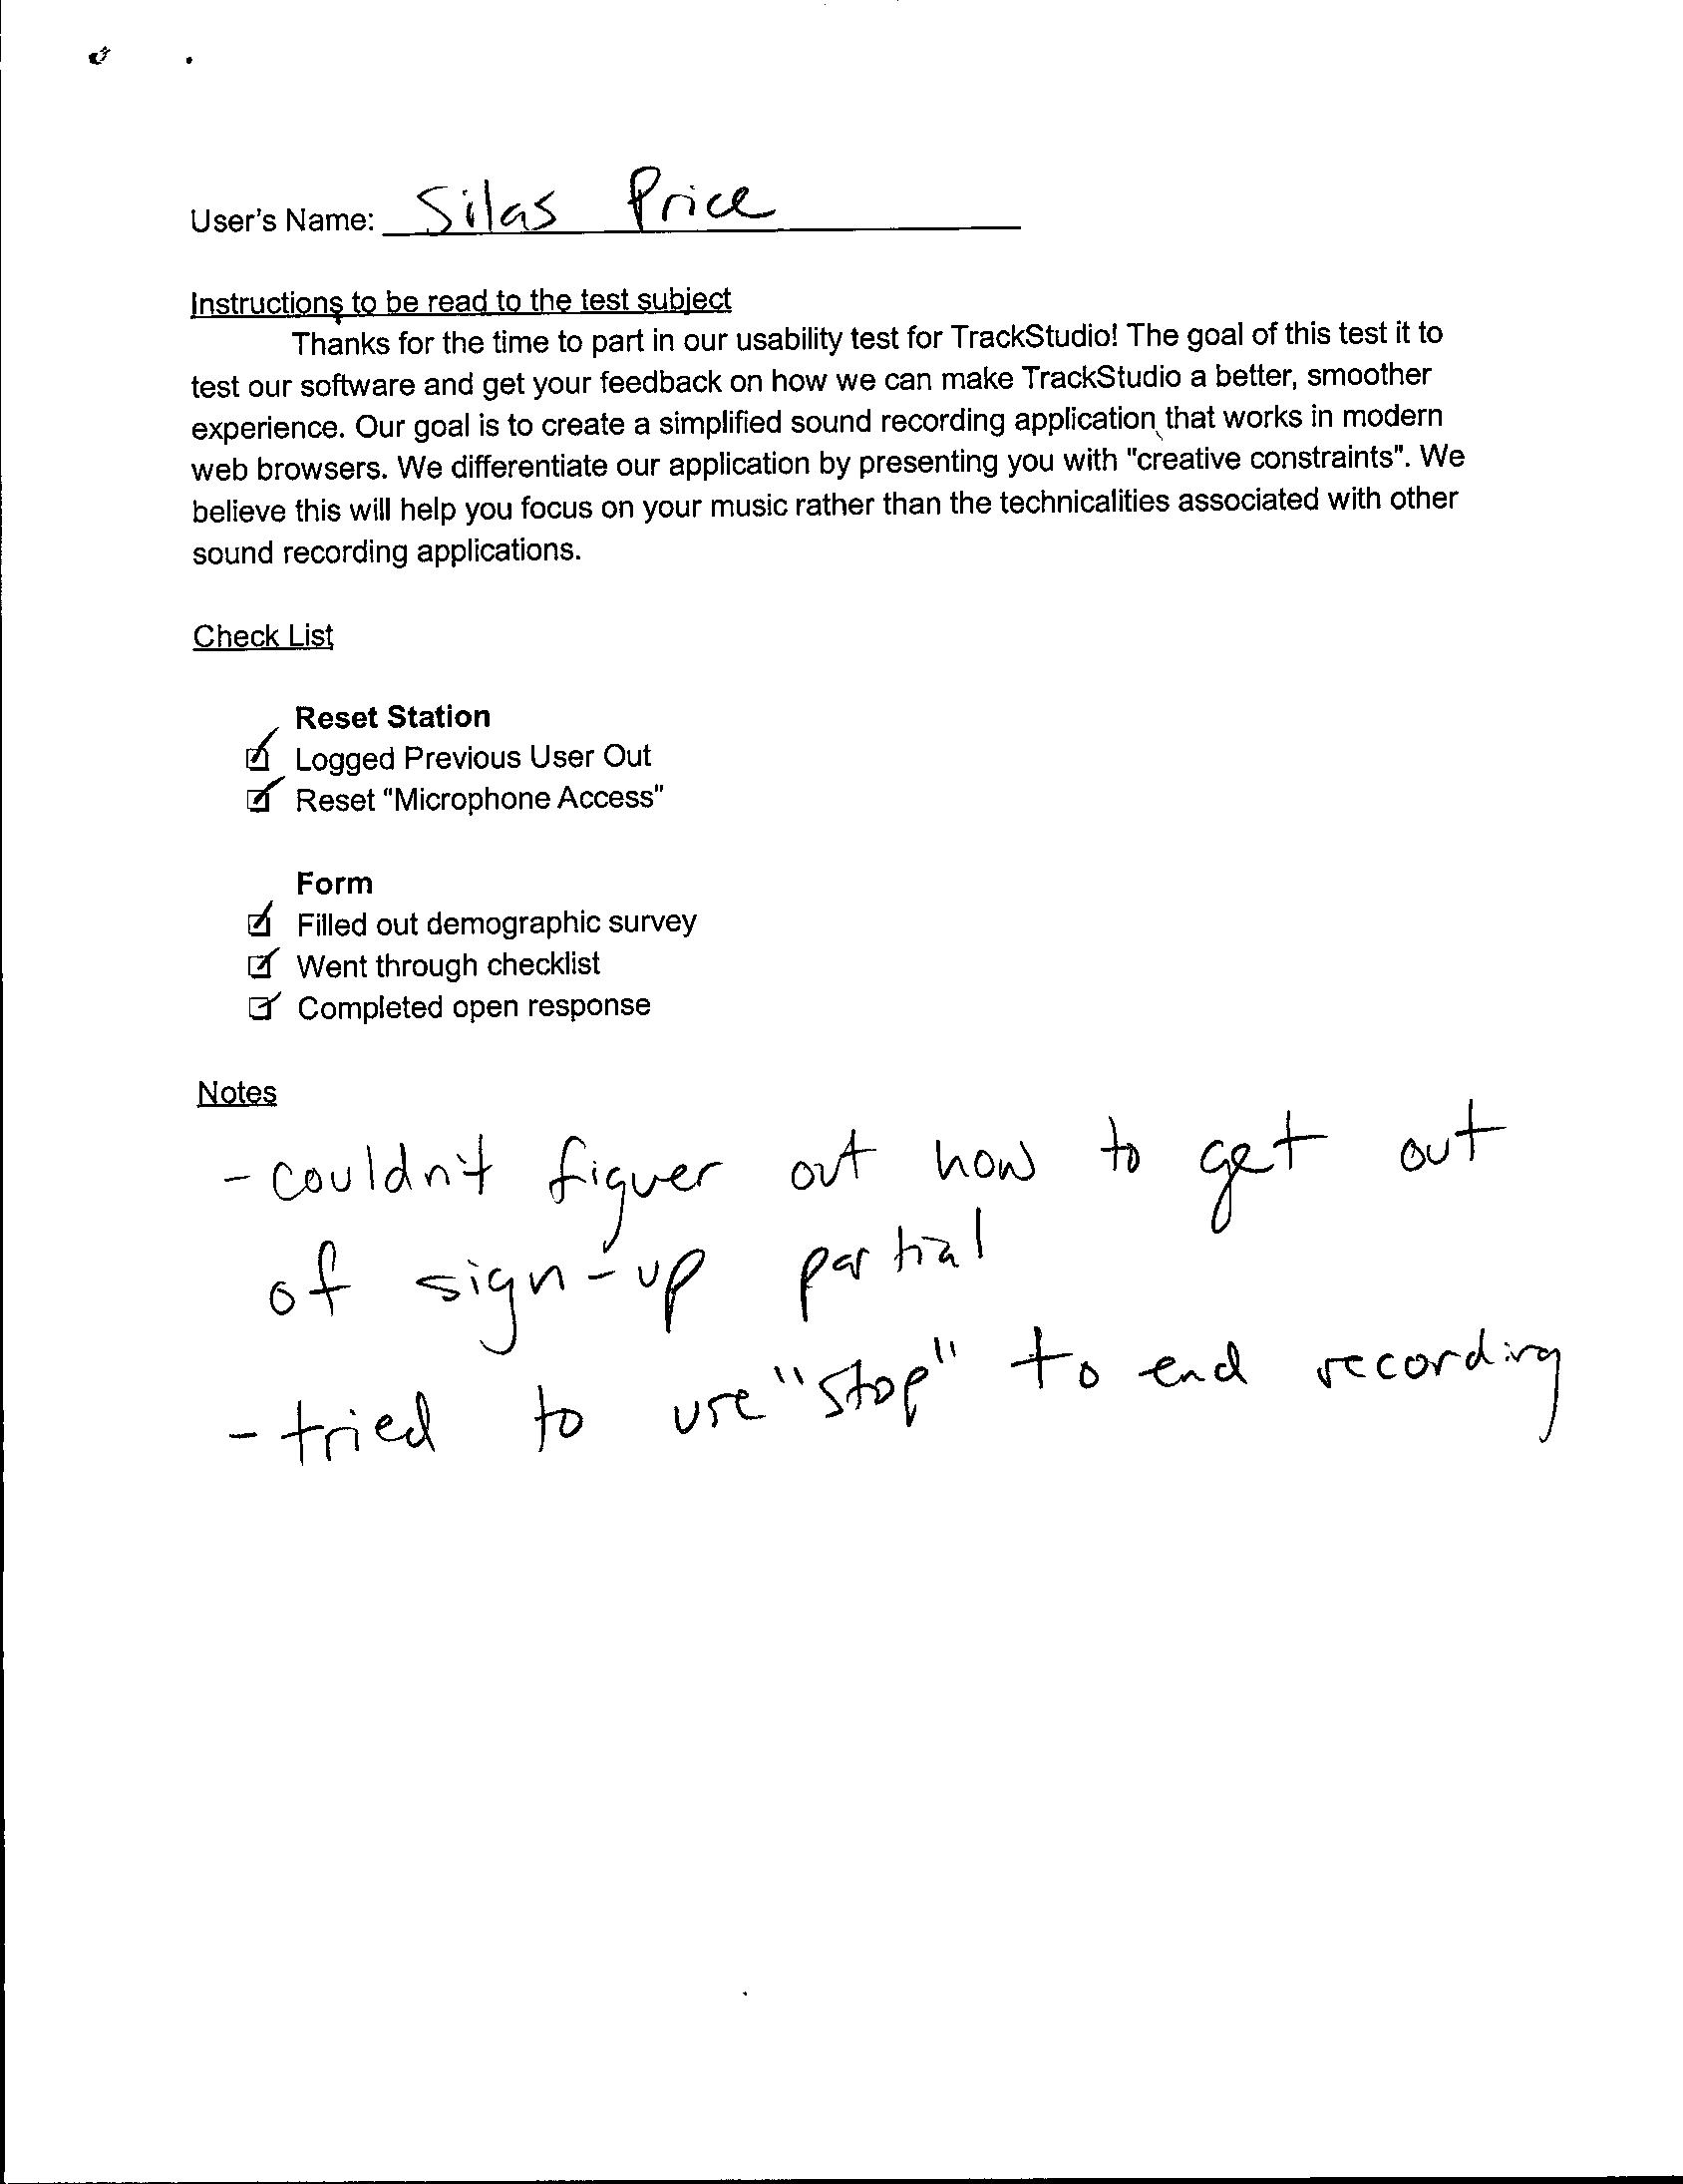 User's Name: Silas Price
Instructions to be read to the test subject
Thanks for the time to part in our usability test for TrackStudio! The goal of this test it to
test our software and get your feedback on how we can make TrackStudio a better, smoother
experience. Our goal is to create a simplified sound recording application that works in modern
web browsers. We differentiate our application by presenting you with "creative constraints". We
believe this will help you focus on your music rather than the technicalities associated with other
sound recording applications.
Check List
Reset Station
Logged Previous User Out
Reset "Microphone Access"
Form
Filled out demographic survey
Went through checklist
Completed open response
Notes
- couldn't figuer out how to get out
of sign-up partial
- tried to use "stop" to end recording